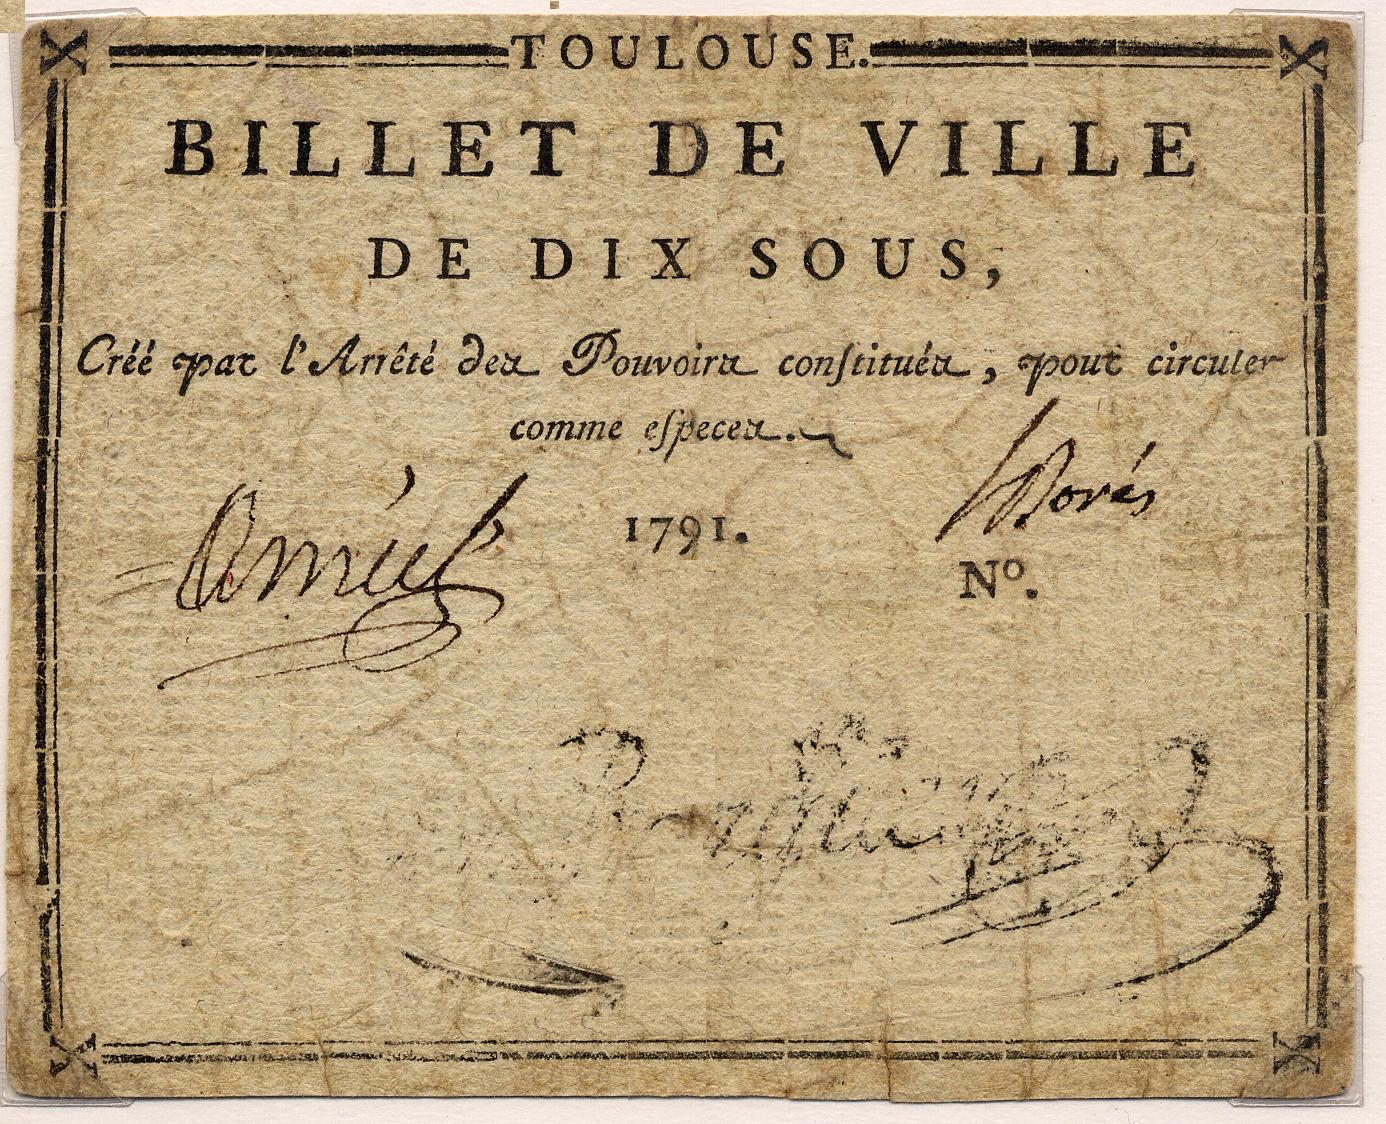 TOULOUSE.
BILLET DE VILLE
DE DIX SOUS,
Créé par l'Arrêté des Pouvoirs conſtitués, pour circuler
comme eſpeces.
1791.
Nº.